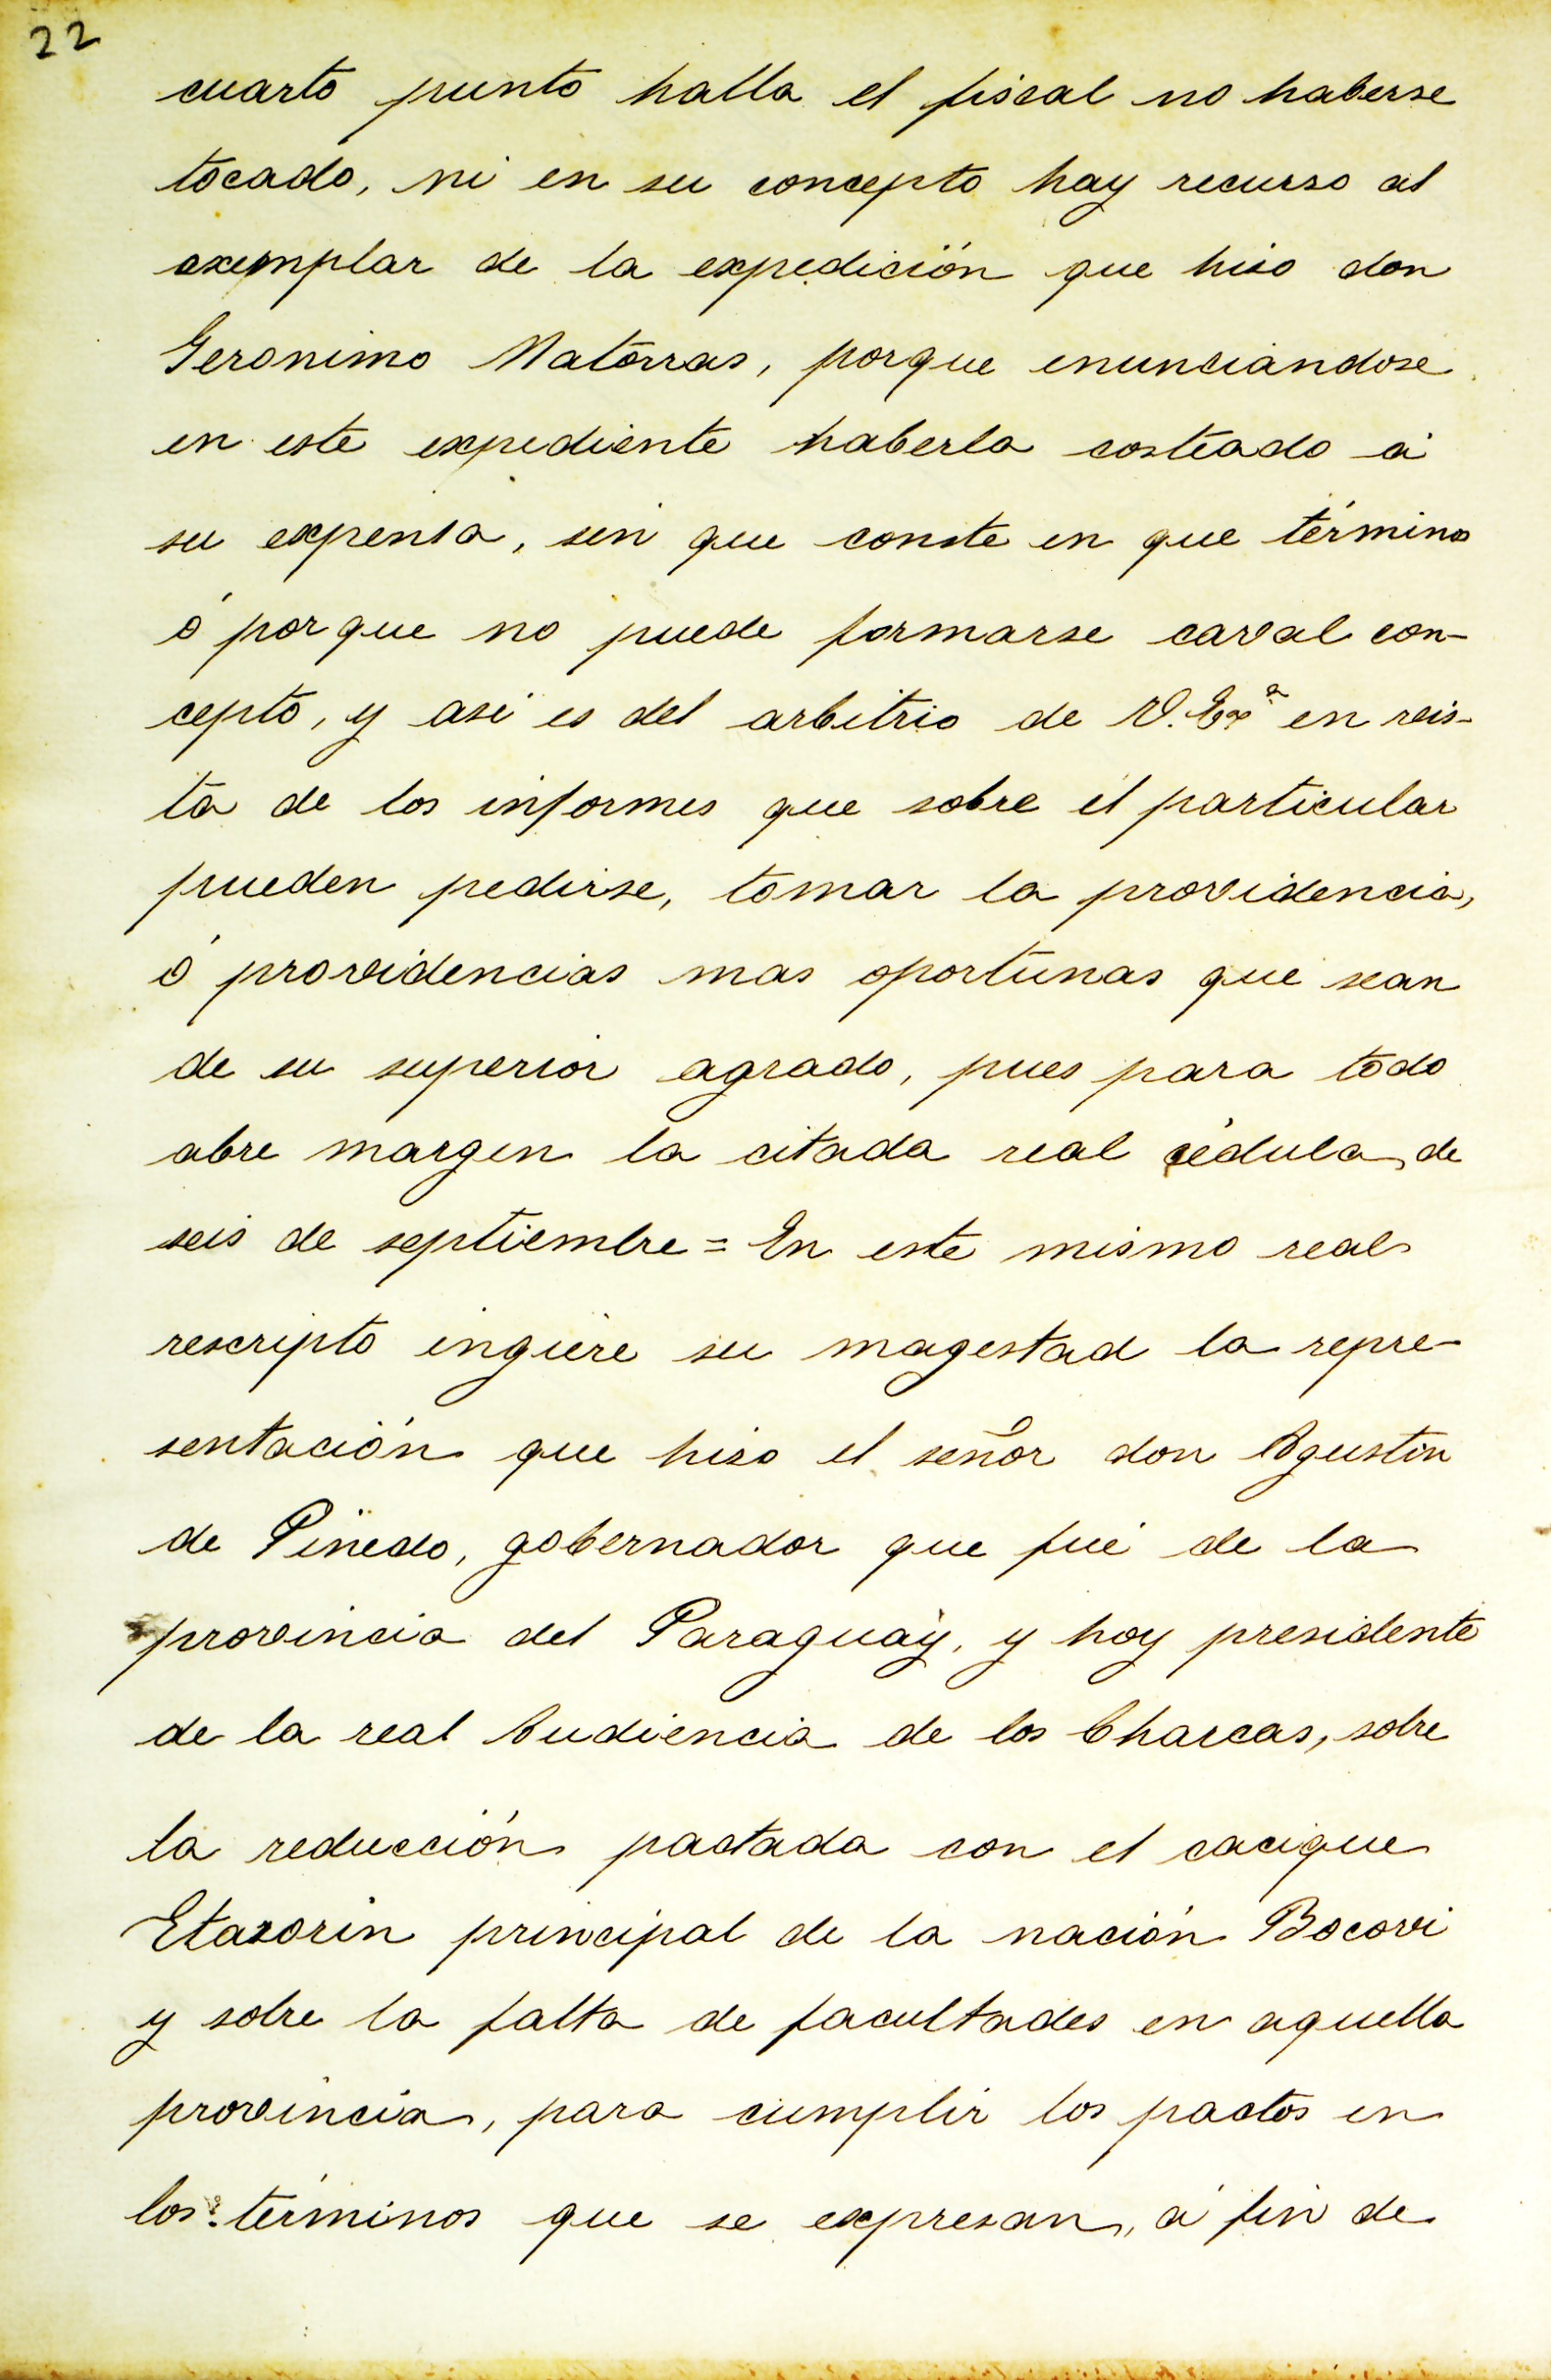 22
cuarto punto halla el fiscal no haberse
tocado, ni en su concepto hay recurso al
exemplar de la expedición que hiso don
Geronimo Matorras, porque enunciandose
en este expediente haberla costeado á
su expensa, sin que conste en que término
ó por que no puede formarse caval con-
cepto, y asi es del arbitrio de V. Exª en vis-
ta de los informes que sobre el particular
pueden pedirse, tomar la providencia,
ó providencias mas oportunas que sean
de su superior agrado, pues para todo
abre margen la citada real cédula de
seis de septiembre = En este mismo real
rescripto ingiere su magestad la repre-
sentación que hizo el señor don Agustin
de Pinedo, gobernador que fué de la
provincia del Paraguay, y hoy presidente
de la real Audiencia de los Charcas, sobre
la reducción pactada con el cacique
Etazorin principal de la nación Bocovi
y sobre la falta de facultades en aquella
provincia, para cumplir los pactos en
los términos que se expresan, á fin de